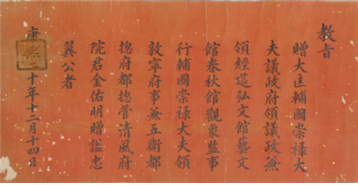 教旨
贈大匡輔國崇祿大
夫議政府領議政兼
領經筵弘文館藝文
館春秋館觀象監事
行輔國崇祿大夫領
敦寧府事兼五衛都
摠府都摠管清風府
院君金佑明贈謚忠
翼公者
康熙二十年十二月十四日